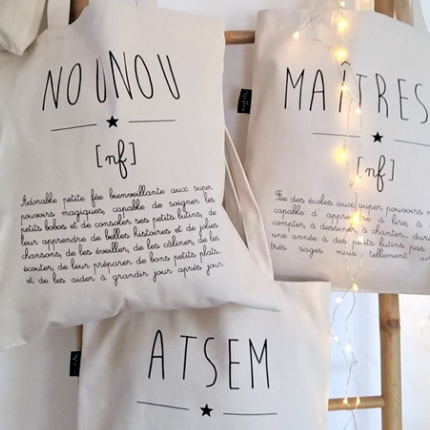 NOUNOU
[nf]
Adorable petite fée bienveillante aux super
pouvoirs magiques, capable de soigner les
petits bobos et de consoler ses petits lutins, de
leur apprendre de belles histoires et de jolies
chansons, de les éveiller, de les câliner, de les
écouter, de leur préparer de bons petits plats...
et de les aider à grandir jour après jour
MAÎTRES
[nf]
Fée des écoles aux super pouvoirs
capable d'apprendre à lire, à
compter, à dessiner, à chanter... durant
une année à des petits lutins pas
très sages mais tellement
ATSEM